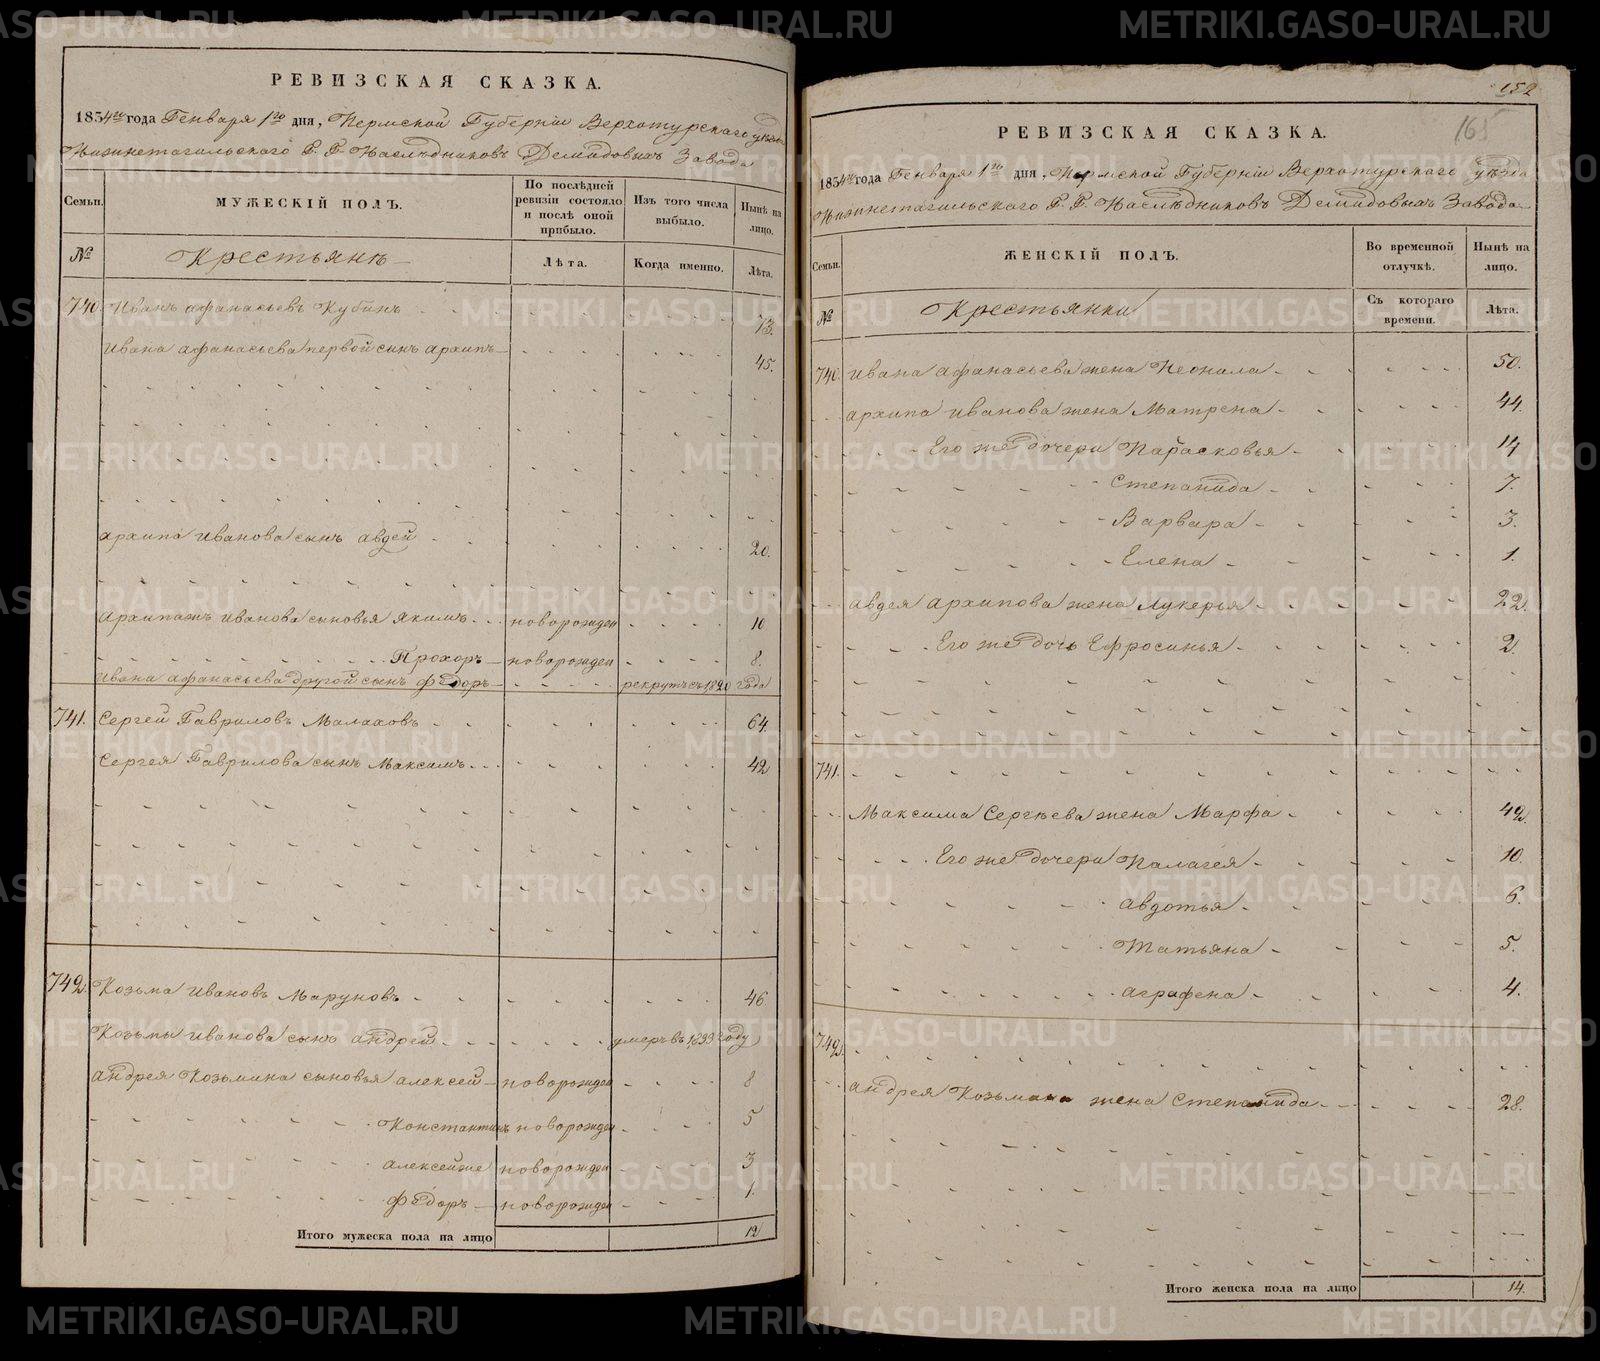 РЕВИЗСКАЯ СКАЗКА.
1834го года Генваря 1го дня, Пермской Губернiи Верхотурскаго уѣзда
Нижнетагильскаго Г. Г. Наслѣдниковъ Демидовыхъ Завода
Семьи.
МУЖЕСКIЙ ПОЛЪ.
По послѣдней ревизiи состояло и послѣ оной прибыло.
Изъ того числа выбыло.
Нынѣ на лицо.
№
Крестьянѣ
Лѣта.
Когда именно.
Лѣта.
740. Иванъ Афанасьевъ Кубинъ 73.
Ивана Афанасьева первой сынъ Архипъ 45.
Архипа Иванова сынъ Авдей 20.
Архипажъ Иванова сыновья Якимъ новорожден 10
Прохоръ новорожден 8.
Ивана Афанасьева другой сынъ Фёдоръ рекрутъ съ 1820 года
741. Сергей Гавриловъ Малаховъ 64.
Сергея Гаврилова сынъ Максимъ 42
742. Козьма Ивановъ Маруновъ 46
Козьмы Иванова сынъ Андрей умеръ въ 1833 году
Андрея Козьмина сыновья Алексей новорожден 8
Константинъ новорожден 5
Алексейже новорожден 3
Фёдоръ новорожден 1.
Итого мужеска пола на лицо 12
152
165
РЕВИЗСКАЯ СКАЗКА.
1834го года Генваря 1го дня, Пермской Губернiи Верхотурскаго уѣзда
Нижнетагильскаго Г. Г. Наслѣдниковъ Демидовыхъ Завода
Семьи.
ЖЕНСКIЙ ПОЛЪ.
Во временной отлучкѣ.
Нынѣ на лицо.
№
Крестьянки
Съ котораго времени.
Лѣта.
740. Ивана Афанасьева жена Неонила 50.
Архипа Иванова жена Матрена 44.
Его же дочери Парасковья 14
Степанида 7.
Варвара 3.
Елена 1.
Авдея Архипова жена Лукерья 22.
Его же дочь Ефросинья 2.
741.
Максима Сергѣева жена Марфа 42.
Его же дочери Палагея 10.
Авдотья 6.
Татьяна 5.
Аграфена 4.
742.
Андрея Козьмина жена Степанида 28.
Итого женска пола на лицо 14.
METRIKI.GASO-URAL.RU